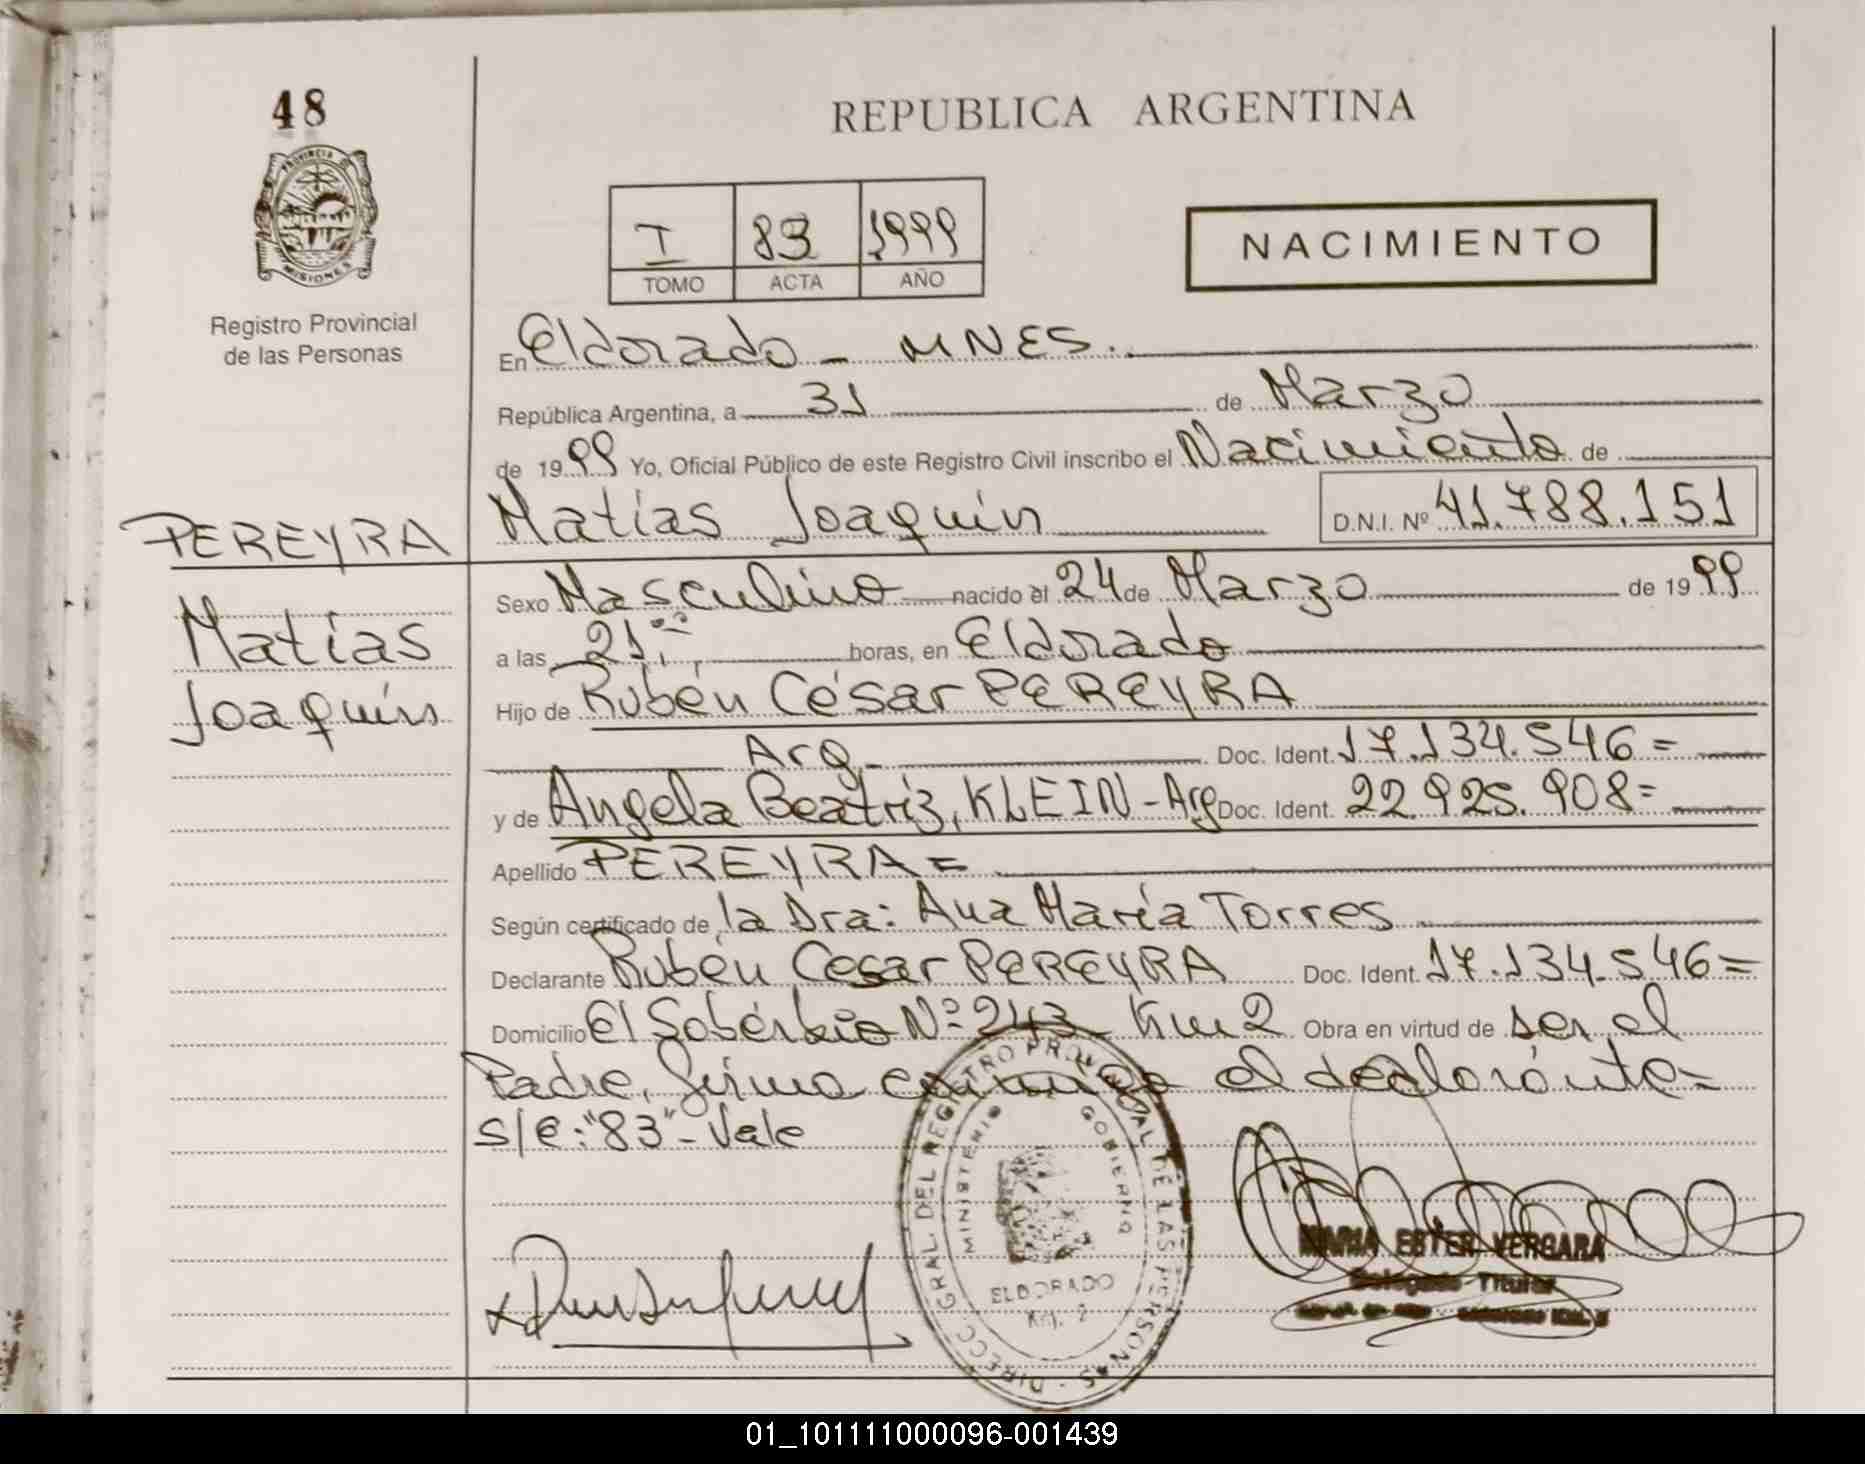 48
PROVINCIA DE
MISIONES
Registro Provincial
de las Personas
REPUBLICA ARGENTINA
I 83 1999
TOMO ACTA AÑO
NACIMIENTO
En Eldorado - MNES.
República Argentina, a 31 de Marzo
de 1999 Yo, Oficial Público de este Registro Civil inscribo el Nacimiento de
PEREYRA
Matías Joaquín D.N.I. Nº 41.788.151
Matías
Joaquín
Sexo Masculino nacido el 24 de Marzo de 1999
a las 21: horas, en Eldorado
Hijo de Rubén César PEREYRA
Arg. Doc. Ident. 17.134.546=
y de Angela Beatriz, KLEIN - Arg Doc. Ident. 22.925.908=
Apellido PEREYRA=
Según certificado de la Dra: Ana María Torres
Declarante Rubén Cesar PEREYRA Doc. Ident. 17.134.546=
Domicilio El Sobérbio Nº 243 - Km 2 Obra en virtud de ser el
Padre, firma conmigo el declaránte=
s/e: "83" - Vale
DIRECC. GRAL. DEL REGISTRO PROVINCIAL DE LAS PERSONAS
MINISTERIO GOBIERNO
ELDORADO
Km. 2
MARIA ESTER VERGARA
Delegada Titular
01_101111000096-001439